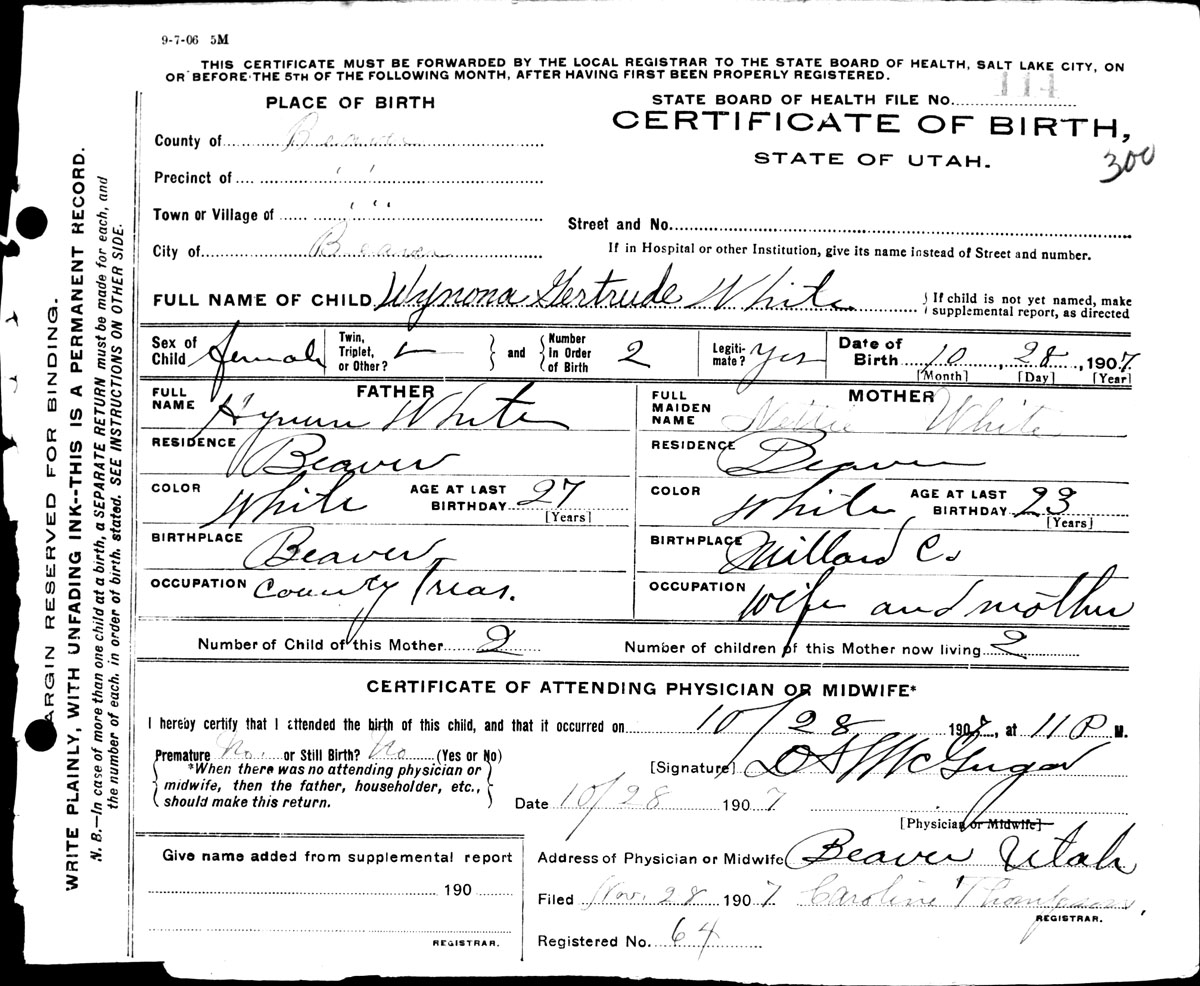 9-7-06 5M
THIS CERTIFICATE MUST BE FORWARDED BY THE LOCAL REGISTRAR TO THE STATE BOARD OF HEALTH, SALT LAKE CITY, ON
OR BEFORE THE 5TH OF THE FOLLOWING MONTH, AFTER HAVING FIRST BEEN PROPERLY REGISTERED.
PLACE OF BIRTH
STATE BOARD OF HEALTH FILE No. 114
CERTIFICATE OF BIRTH,
STATE OF UTAH.
300
County of Beaver
Precinct of " "
Town or Village of " "
City of Beaver
Street and No.
If in Hospital or other Institution, give its name instead of Street and number.
FULL NAME OF CHILD Wynona Gertrude White
If child is not yet named, make
supplemental report, as directed
Sex of Child female
Twin, Triplet, or Other?
and
Number In Order of Birth 2
Legiti-mate? Yes
Date of Birth 10, 28, 1907
[Month] [Day] [Year]
FATHER
FULL NAME Hyrum White
RESIDENCE Beaver
COLOR White AGE AT LAST BIRTHDAY 27
[Years]
BIRTHPLACE Beaver
OCCUPATION County Treas.
MOTHER
FULL MAIDEN NAME Nettie White
RESIDENCE Beaver
COLOR White AGE AT LAST BIRTHDAY 23
[Years]
BIRTHPLACE Millard Co
OCCUPATION wife and mother
Number of Child of this Mother 2
Number of children of this Mother now living 2
CERTIFICATE OF ATTENDING PHYSICIAN OR MIDWIFE*
I hereby certify that I attended the birth of this child, and that it occurred on 10/28 1907, at 11 P M.
Premature No. or Still Birth? No (Yes or No)
*When there was no attending physician or
midwife, then the father, householder, etc.,
should make this return.
[Signature] McGregor
Date 10/28 1907
[Physician or Midwife]
Address of Physician or Midwife Beaver Utah
Filed Nov. 28 1907 Caroline Thompson,
REGISTRAR.
Registered No. 64
Give name added from supplemental report
190
REGISTRAR.
ARGIN RESERVED FOR BINDING.
WRITE PLAINLY, WITH UNFADING INK--THIS IS A PERMANENT RECORD.
N. B.—In case of more than one child at a birth, a SEPARATE RETURN must be made for each, and
the number of each, in order of birth, stated. SEE INSTRUCTIONS ON OTHER SIDE.